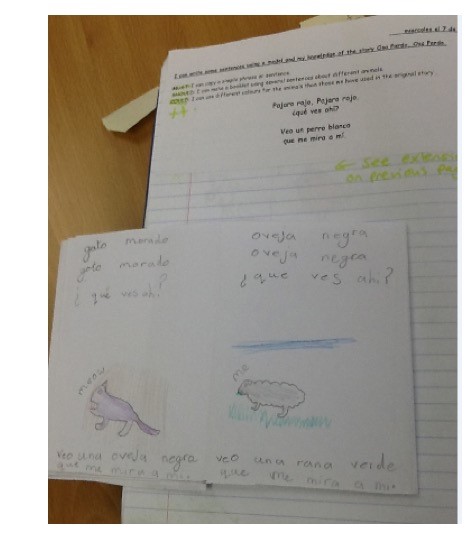 miercoles el 7 de
I can write some sentences using a model and my knowledge of the story Oso Pardo, Oso Pardo.
MUST: I can copy a simple phrase or sentence.
SHOULD: I can write a booklet using several sentences about different animals.
COULD: I can use different colours for the animals than those we have used in the original story.
++
Pajaro rojo, Pajaro rojo,
¿qué ves ahí?
Veo un perro blanco
que me mira a mí.
← See extens
on previous pa
gato morado
gato morado
¿qué ves ahí?
meow
veo una oveja negra
que me mira a mi.
oveja negra
oveja negra
¿que ves ahi?
me
veo una rana verde
que me mira a mi.